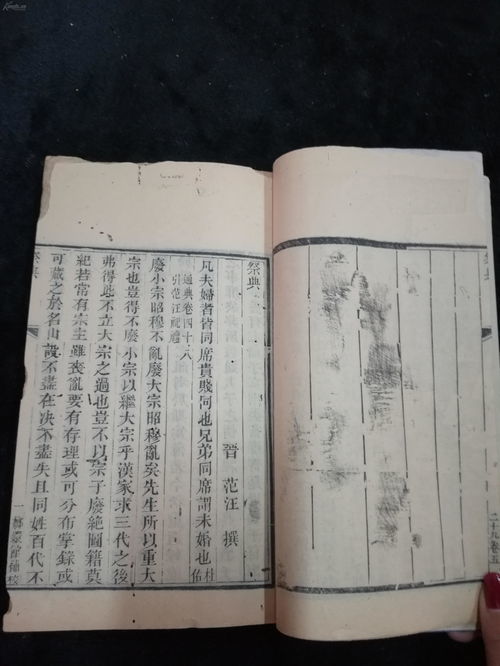 二十九卷五
祭典
晉 范汪 撰
凡夫婦者皆同席貴賤同也兄弟同席謂未婚也 杜佑
通典卷四十八
引范汪祀禮
廢小宗昭穆不亂廢大宗昭穆亂矣先生所以重大
宗也豈得不廢小宗以繼大宗乎漢家求三代之後
弗得此不立大宗之過也豈不以宗子廢絶圖籍莫
紀若常有宗主雖喪亂要有存理或可分布掌錄或
可藏之於名山設不盡在決不盡失且同姓百代不
祭典
一